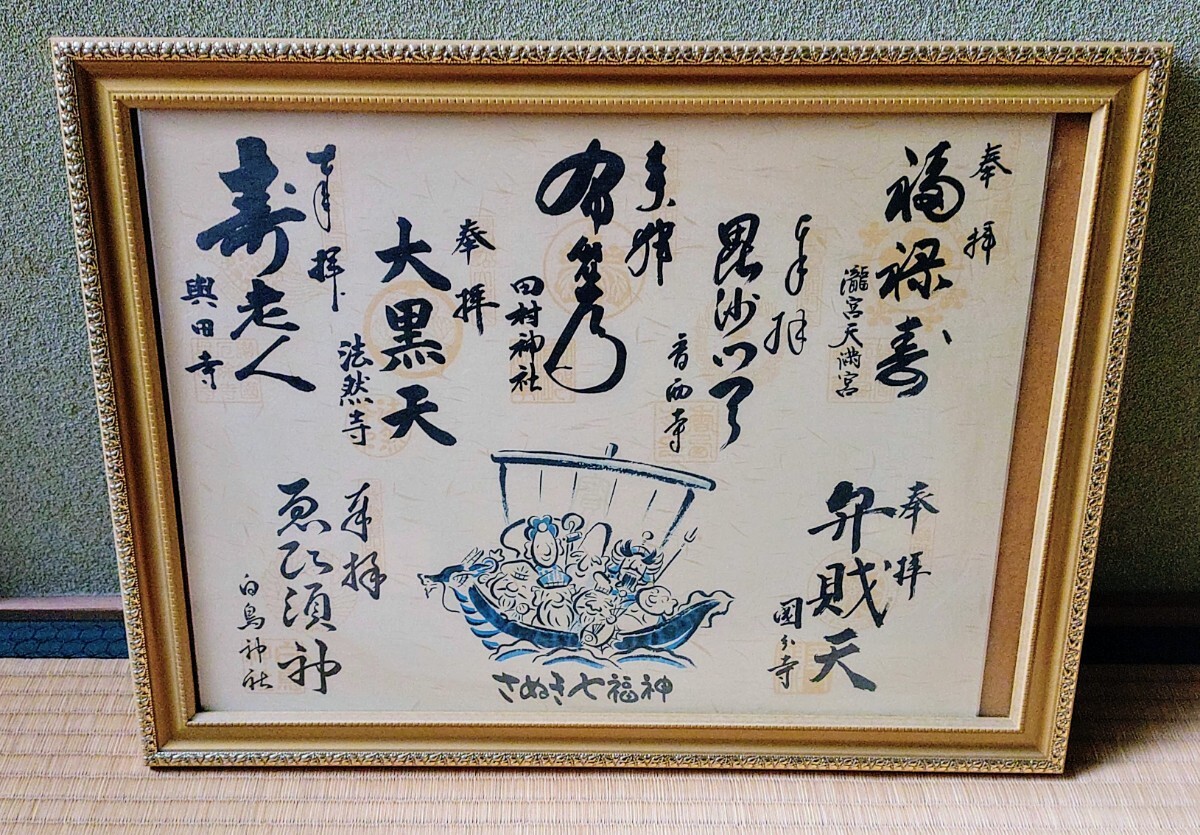 奉拝
福禄寿
瀧宮天満宮
奉拝
毘沙門天
奉拝
布袋尊
田村神社
奉拝
大黒天
法然寺
奉拝
寿老人
與田寺
奉拝
弁財天
國分寺
奉拝
ゑびす神
白鳥神社
さぬき七福神